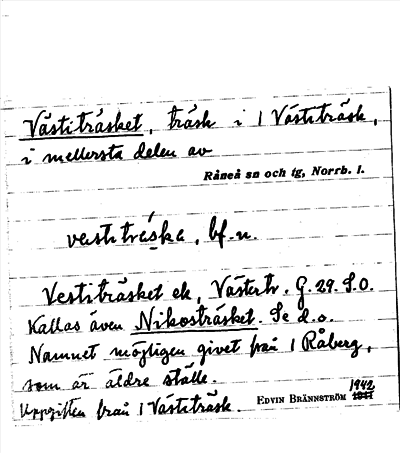 Västiträsket, träsk i 1 Västiträsk,
i mellersta delen av
Råneå sn och tg, Norrb. l.
vestitráska, bf. n.
Vestiträsket ek, Västertr. G. 29. S.O.
Kallas även Nikosträsket. Se d.o.
Namnet möjligen givet från 1 Råberg,
som är äldre ställe.
Uppgiften från 1 Västiträsk.
EDVIN BRÄNNSTRÖM 1942